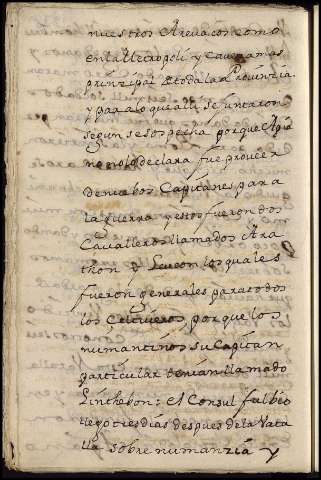 nuestros Arevacos como
en la Metropoli y Caveza mas
prinzipal de toda la Provinzia.
y para lo que alli se juntaron
segun se sospecha porque Apia
no no lo declara fue proveer
de nuebos Capitanes para
la guerra y estos fueron dos
Cavalleros llamados Ara
thon y Leucon los quales
fueron generales para todos
los Zeltiveros porque los
numantinos su Capitan
particular tenian llamado
Linthebon: el Consul fulbio
llego tres dias despues de la Vata
lla sobre numanzia y